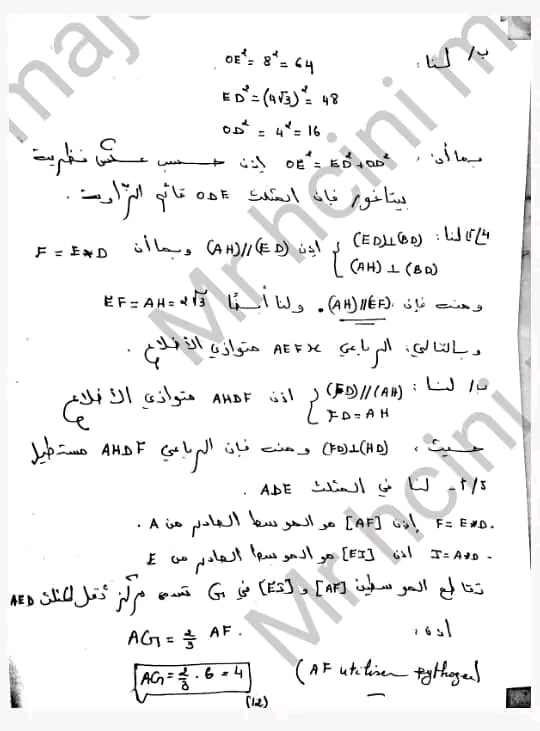 ب/ لنا: OE² = 8² = 64
ED² = (4√3)² = 48
OD² = 4² = 16
بما أن، OE² = ED² + OD² إذن حسب عكس نظرية
بيتاغور فإن المثلث ODE قائم الزاوية.
4/أ) لنا: {(ED)⊥(BD) (AH)⊥(BD) إذن (AH)//(ED) وبما أن F = E*D
ومنه فإن (AH)//(EF). ولنا أيضًا EF = AH = 2√3
وبالتالي، الرباعي AEFH متوازي الأضلاع.
ب/ لنا: {(FD)//(AH) FD = AH إذن AHDF متوازي الأضلاع
حيث، (FD)⊥(HD) ومنه فإن الرباعي AHDF مستطيل
5/أ- لنا في المثلث ADE.
F = E*D. إذن [AF] هو الموسط الصادر من A.
I = A*D. إذن [EI] هو الموسط الصادر من E
تقاطع الموسطين [AF] و [EI] في G تسمى مركز ثقل المثلث AED
إذن، AG = 2/3 AF.
AG = 2/3 . 6 = 4 (AF utiliser pythagor)
(12)
Mr hcini maj